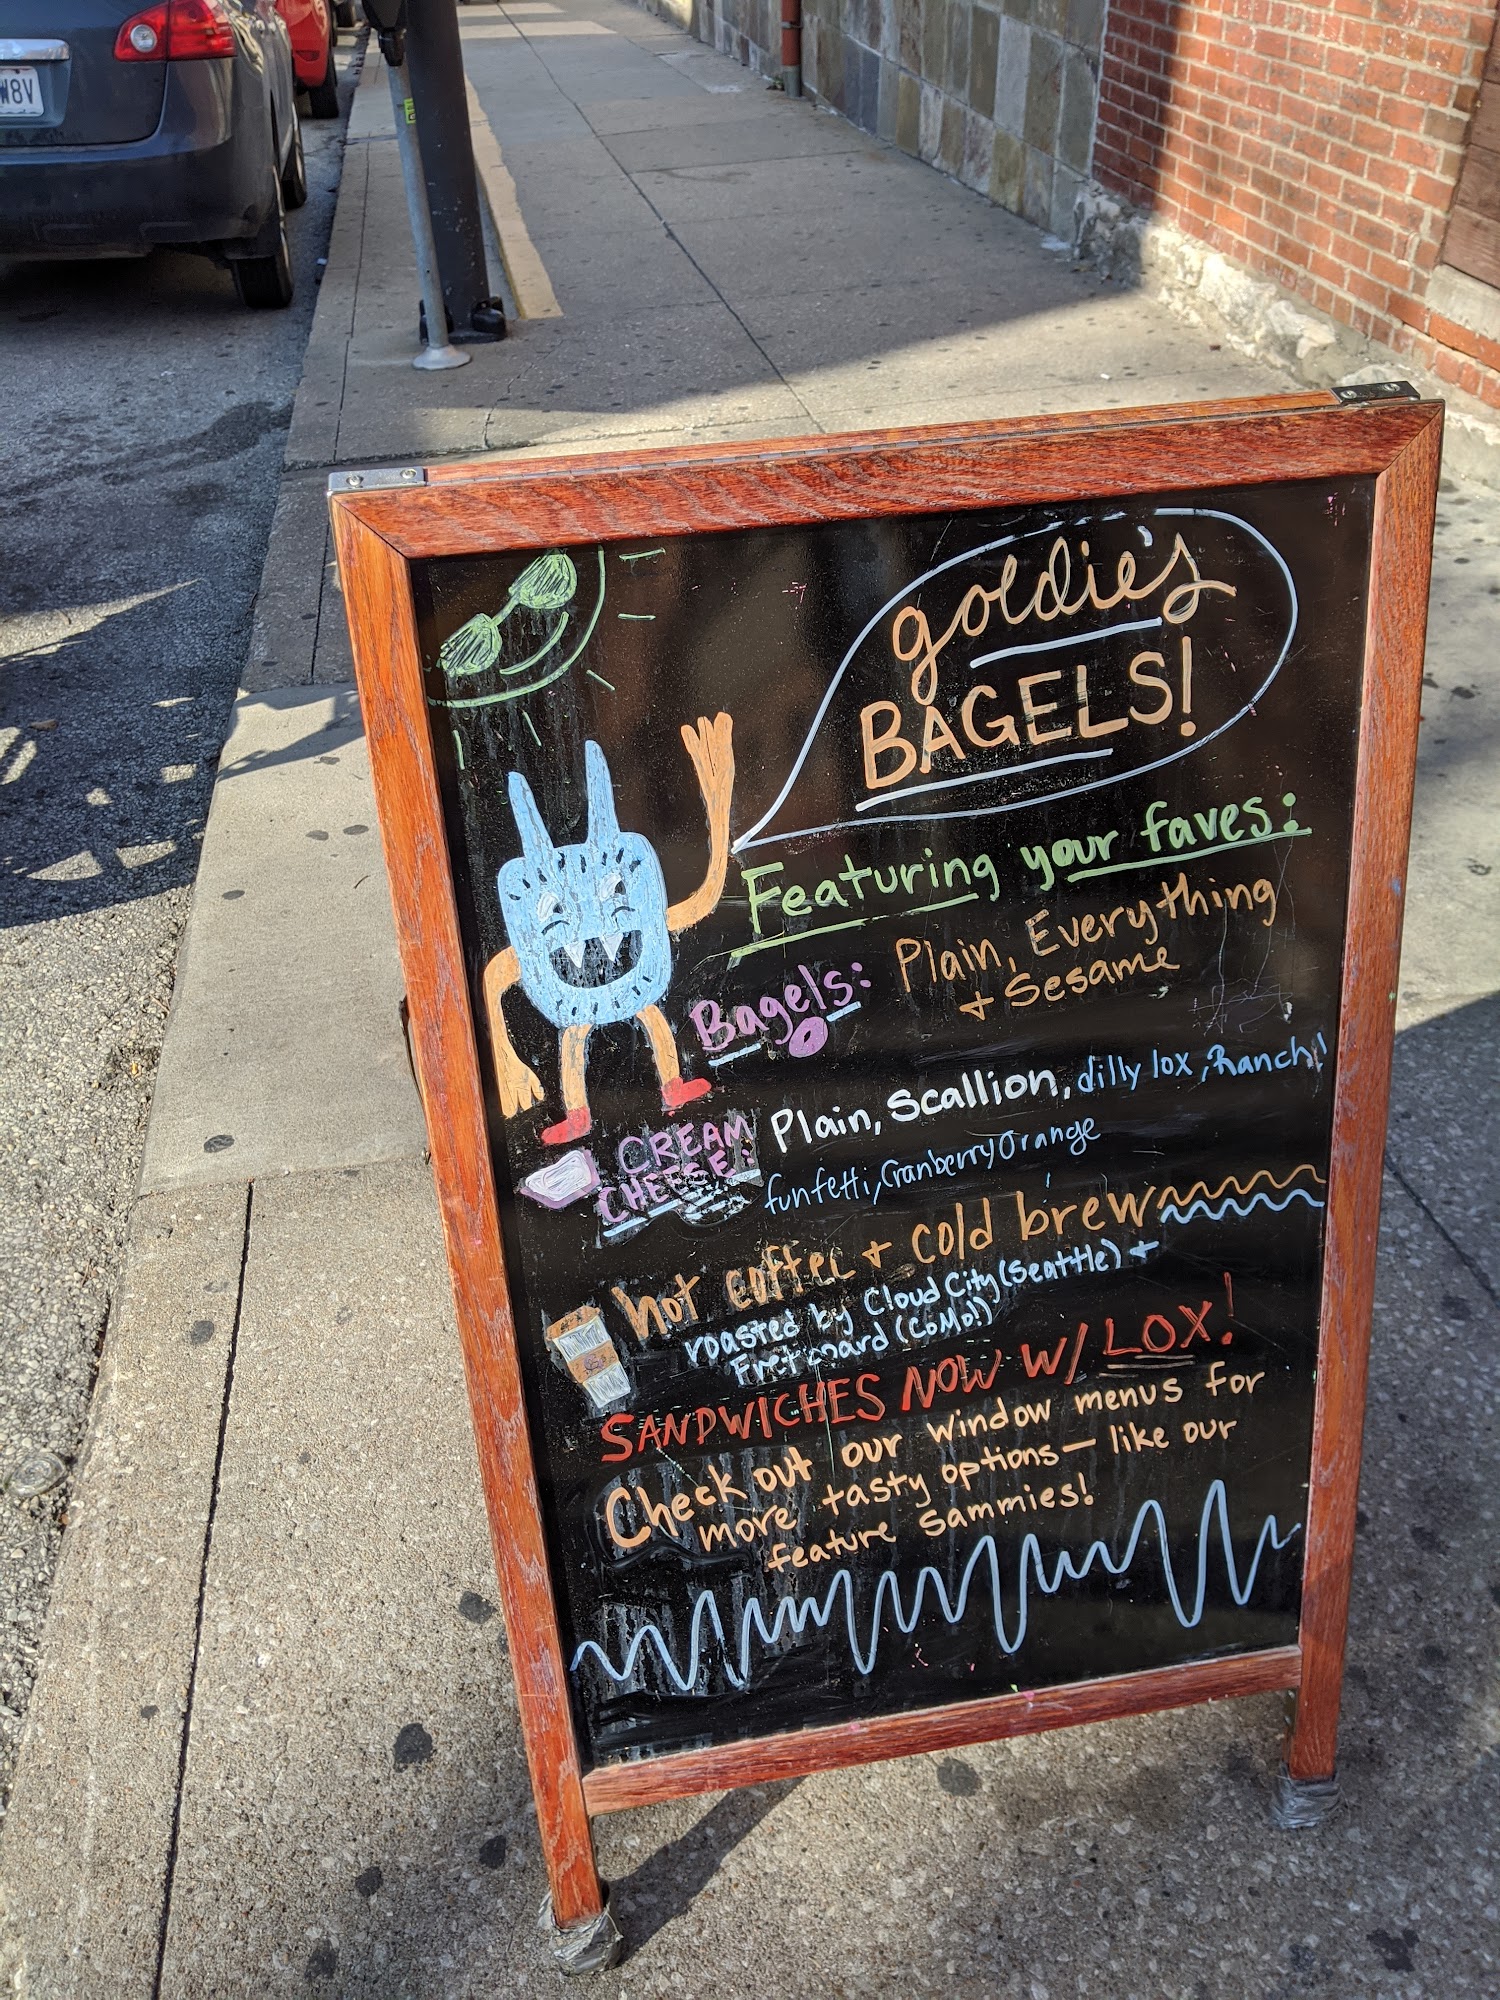 W8V
goldie's
BAGELS!
Featuring your faves:
Bagels: Plain, Everything
+ Sesame
CREAM
CHEESE: Plain, Scallion, dilly lox, Ranch!
funfetti, Cranberry Orange
hot coffee + cold brew
roasted by Cloud City (Seattle) +
Fretboard (CoMo!)
SANDWICHES NOW W/ LOX!
Check out our window menus for
more tasty options — like our
feature sammies!